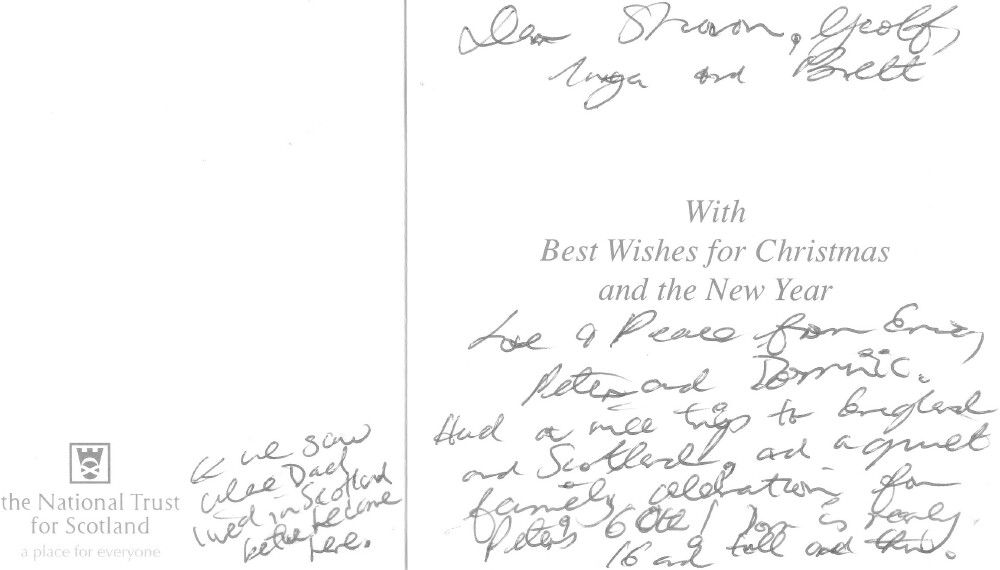 Dear Sharon, Geoff,
Inga and Brett
With
Best Wishes for Christmas
and the New Year
Love & Peace from
Peter and Dominic.
Had a nice trip to England
and Scotland, and a quiet
family celebration for
Peter's 60th! Dom is nearly
16 and tall and thin.
& we saw
where Dad
lived in Scotland
before he came
here.
the National Trust
for Scotland
a place for everyone